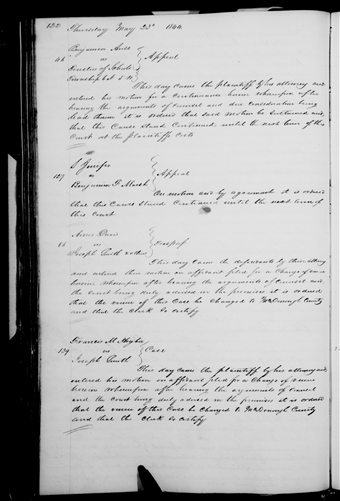 132 Thursday May 23d 1844
Benjamin
46 vs Appeal
Trustees of Schools
Township
This day came the plaintiff by his attorney and
entered his motion for a continuance herein whereupon after
hearing the arguments of counsel and due consideration being
had thereon it is ordered that said motion be sustained and
that this Cause Stand Continued until the next term of this
Court at the plaintiffs costs
S
127 vs Appeal
Benjamin F. Marsh
On motion and by agreement it is ordered
that this Cause Stand Continued until the next term of
this Court
Amos Davis
16 vs Trespass
Joseph Smith & others
This day came the defendants by their attorney
and entered their motion on affidavit filed for a Change of venue
herein whereupon after hearing the arguments of Counsel and
the Court being duly advised in the premises it is ordered
that the venue of this Case be Changed to McDonough County
and that the Clerk So Certify
Francis M. Higbee
139 vs Case
Joseph Smith
This day came the plaintiff by his attorney and
entered his motion on affidavit filed for a Change of venue
herein whereupon after hearing the arguments of Counsel
and the Court being duly advised in the premises it is ordered
that the venue of this Case be Changed to McDonough County
and that the Clerk So Certify